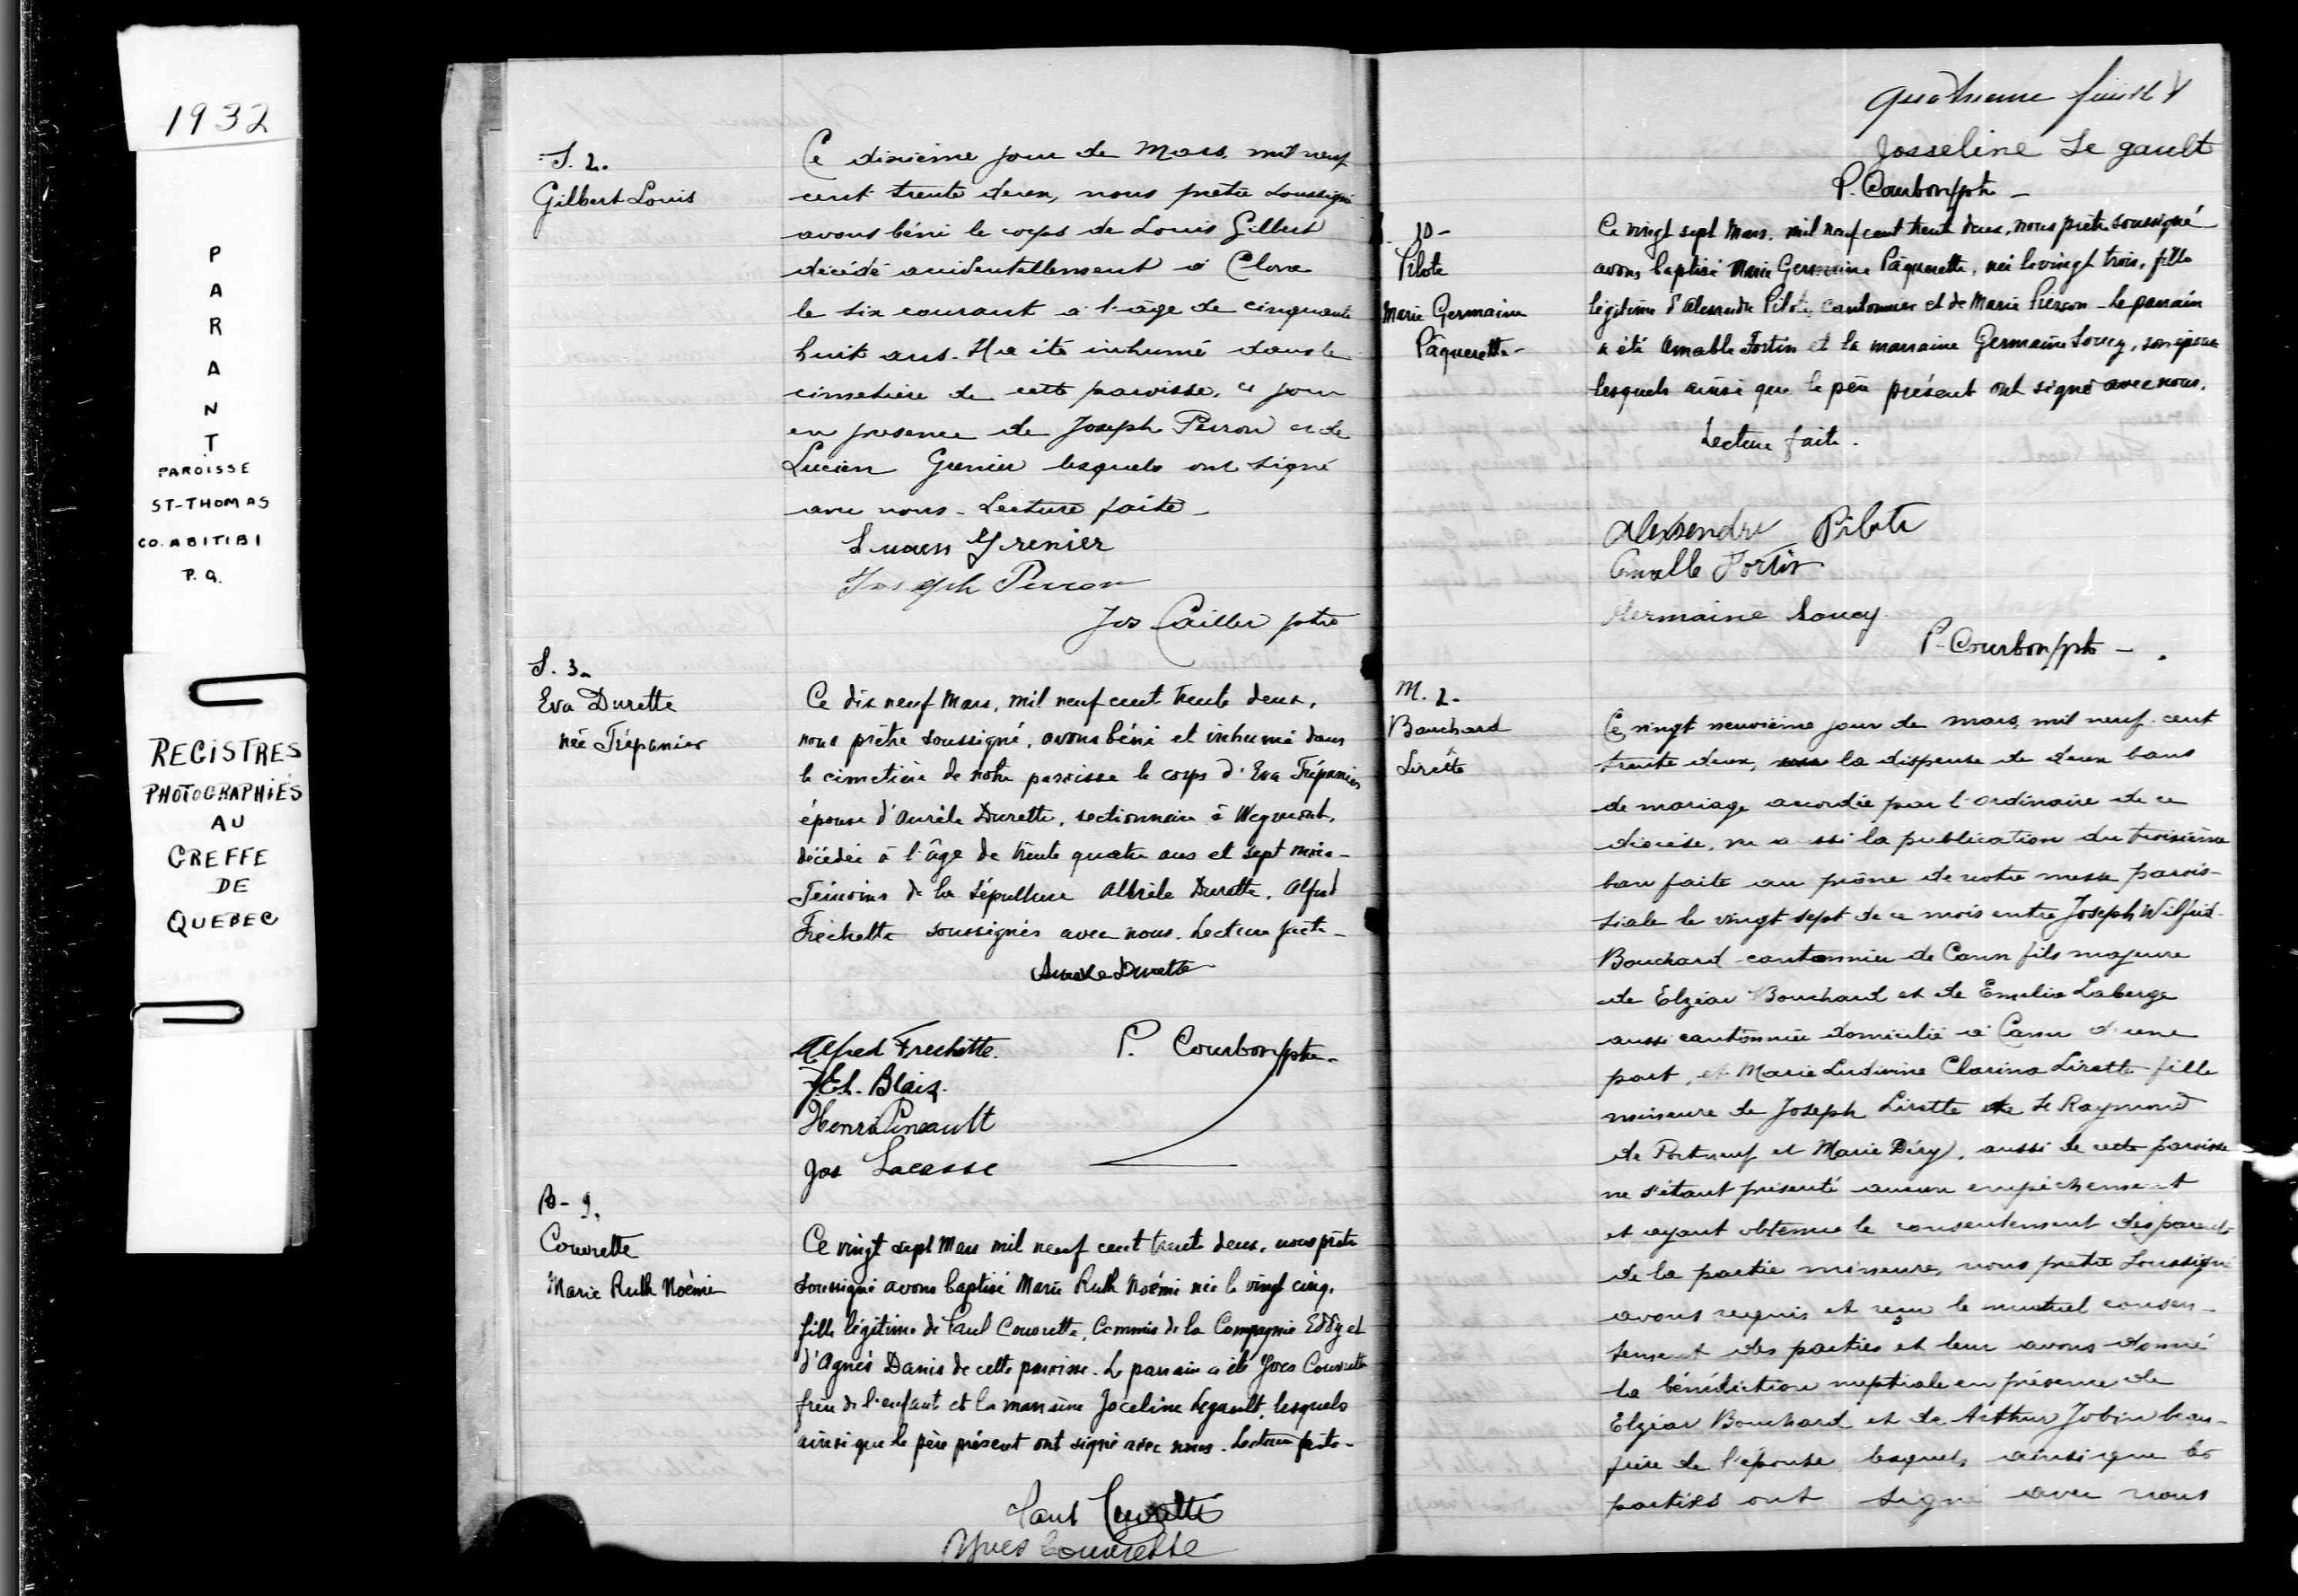 1932
P
A
R
A
N
T
PAROISSE
ST-THOMAS
CO. ABITIBI
P. Q.
REGISTRES
PHOTOGRAPHIÉS
AU
GREFFE
DE
QUEBEC
S. 2.
Gilbert Louis
Ce dixième jour de Mars, mil neuf
cent trente deux, nous prêtre soussigné
avons béni le corps de Louis Gilbert
décédé accidentellement à Clova
le six courant à l'âge de cinquante
huit ans. Il a été inhumé dans le
cimetière de cette paroisse, ce jour
en présence de Joseph Perron et de
Lucien Grenier lesquels ont signé
avec nous - Lecture faite -
Lucien Grenier
Joseph Perron
Jos Cailler ptre
S. 3.
Eva Durette
née Trépanier
Ce dix neuf Mars, mil neuf cent trente deux,
nous prêtre soussigné, avons béni et inhumé dans
le cimetière de notre paroisse le corps d'Eva Trépanier
épouse d'Aurèle Durette, sectionnaire à Weymont,
décédée à l'âge de trente quatre ans et sept mois -
Témoins de la sépulture Durette, Alfred
Fréchette soussignés avec nous. Lecture faite -
Durette
Alfred Frechette.
P. Courbon ptre -
Blais.
Henri Pineault
Jos Lacasse
B - 9.
Couvrette
Marie Ruth Noëmi
Ce vingt sept Mars mil neuf cent trente deux, nous prêtre
soussigné avons baptisé Marie Ruth Noémi née le vingt cinq,
fille légitime de Paul Couvrette, Commis de la Compagnie Eddy et
d'Agnès Danis de cette paroisse. Le parrain a été Yves Couvrette
frère de l'enfant et la marraine Joceline Legault, lesquels
ainsi que le père présent ont signé avec nous. Lecture faite -
Paul Couvrette
Yves Couvrette
Quatrieme feuillet
Josseline Le gault
P. Courbon ptre -
10 -
Pilote
Marie Germaine
Pâquerette -
Ce vingt sept Mars, mil neuf cent trente deux, nous prêtre soussigné
avons baptisé Marie Germaine Pâquerette, née le vingt trois, fille
légitime d'Alexandre Pilote, cantonnier et de Marie Pierson - Le parrain
a été Amable Fortin et la marraine Germaine Soucy, son épouse
lesquels ainsi que le père présent ont signé avec nous.
Lecture faite.
Alexsendre Pilote
Amable Fortin
Germaine Soucy
P. Courbon ptre -
M. 2.
Bouchard
Lirette
Ce vingt neuvième jour de mars, mil neuf cent
trente deux, la dispense de deux bans
de mariage accordée par l'ordinaire de ce
diocèse, vu aussi la publication du troisième
ban faite au prône de notre messe parois-
siale le vingt sept de ce mois entre Joseph Wilfrid
Bouchard cantonnier de Cann fils majeure
de Elzéar Bouchard et de Emelia Laberge
aussi cantonnier domicilié à Cann d'une
part, et Marie Ludivine Clarina Lirette fille
mineure de Joseph Lirette de St Raymond
de Portneuf et Marie Déry, aussi de cette paroisse
ne s'étant présenté aucun empêchement
et ayant obtenue le consentement des parents
de la partie mineure, nous prêtre soussigné
avons requis et reçu le mutuel consen-
tement des parties et leur avons donné
la bénédiction nuptiale en présence de
Elzéar Bouchard et de Arthur Jobin beau-
frère de l'épouse lesquels ainsi que les
parties ont signé avec nous